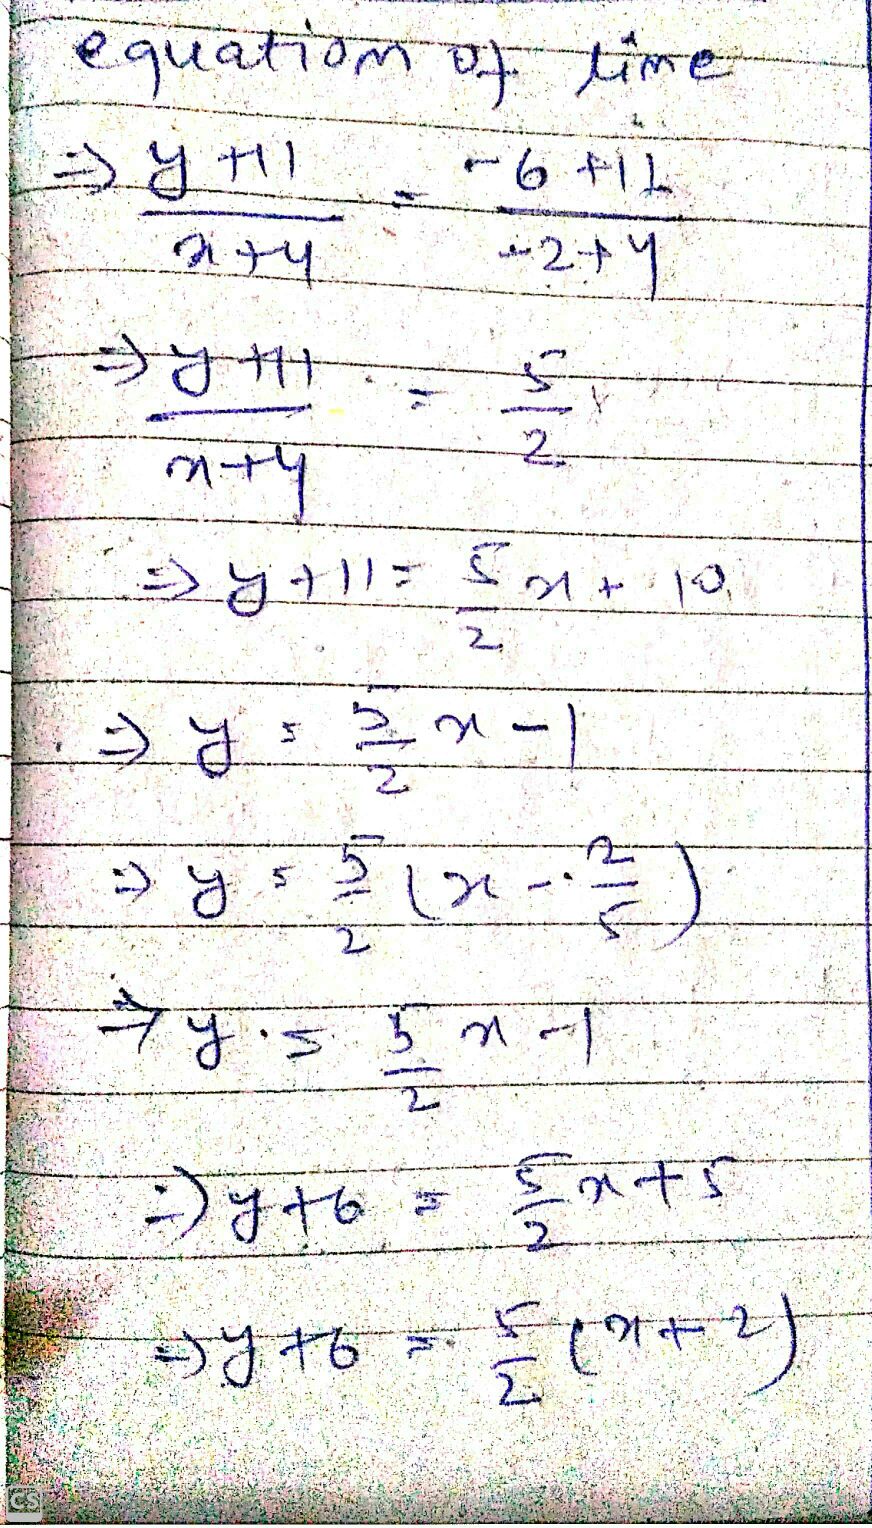 equation of line
⇒ y+11/x+4 = -6+11/-2+4
⇒ y+11/x+4 = 5/2
⇒ y+11 = 5/2 x + 10
⇒ y = 5/2 x - 1
⇒ y = 5/2 (x - 2/5)
⇒ y = 5/2 x - 1
⇒ y+6 = 5/2 x + 5
⇒ y+6 = 5/2 (x+2)
CS